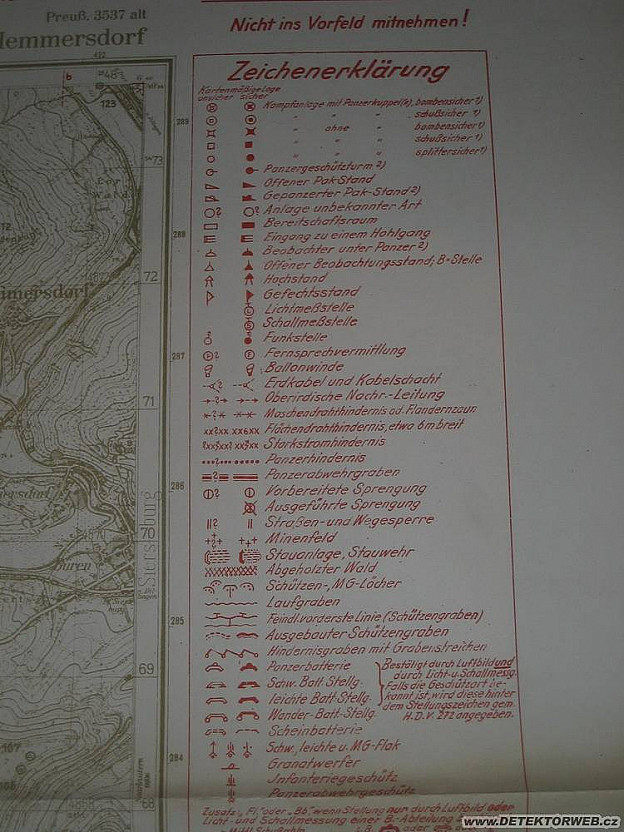 Preuß. 3537 alt
Hemmersdorf
Nicht ins Vorfeld mitnehmen!
Zeichenerklärung
Kartenmäßige Lage
unsicher sicher
Kampfanlage mit Panzerkuppel(n), bombensicher 1)
" " " schußsicher 1)
" ohne " bombensicher 1)
" " " schußsicher 1)
" " " splittersicher 1)
Panzergeschützturm 2)
Offener Pak-Stand
Gepanzerter Pak-Stand 2)
Anlage unbekannter Art
Bereitschaftsraum
Eingang zu einem Hohlgang
Beobachter unter Panzer 2)
Offener Beobachtungsstand; B=Stelle
Hochstand
Gefechtsstand
Lichtmeßstelle
Schallmeßstelle
Funkstelle
Fernsprechvermittlung
Ballonwinde
Erdkabel und Kabelschacht
Oberirdische Nachr.-Leitung
Maschendrahthindernis od. Flandernzaun
Flächendrahthindernis, etwa 6m breit
Starkstromhindernis
Panzerhindernis
Panzerabwehrgraben
Vorbereitete Sprengung
Ausgeführte Sprengung
Straßen- und Wegesperre
Minenfeld
Stauanlage, Stauwehr
Abgeholzter Wald
Schützen-, MG-Löcher
Laufgraben
Feindl. vorderste Linie (Schützengraben)
Ausgebauter Schützengraben
Hindernisgraben mit Grabenstreichen
Panzerbatterie
Schw. Batt-Stellg.
leichte Batt-Stellg.
Wander-Batt-Stellg.
Bestätigt durch Luftbild und
durch Licht-u. Schallmessg.
Falls die Geschützart be-
kannt ist, wird diese hinter
dem Stellungszeichen gem.
H.D.V. 272 angegeben.
Scheinbatterie
Schw., leichte u. MG-Flak
Granatwerfer
Infanteriegeschütz
Panzerabwehrgeschütz
Zusatz „Fl." oder „Bb", wenn Stellung nur durch Luftbild oder
Licht- und Schallmessung einer B.-Abteilung
123
73
72
71
70
69
68
289
288
287
286
285
284
Siersburg
www.DETEKTORWEB.cz